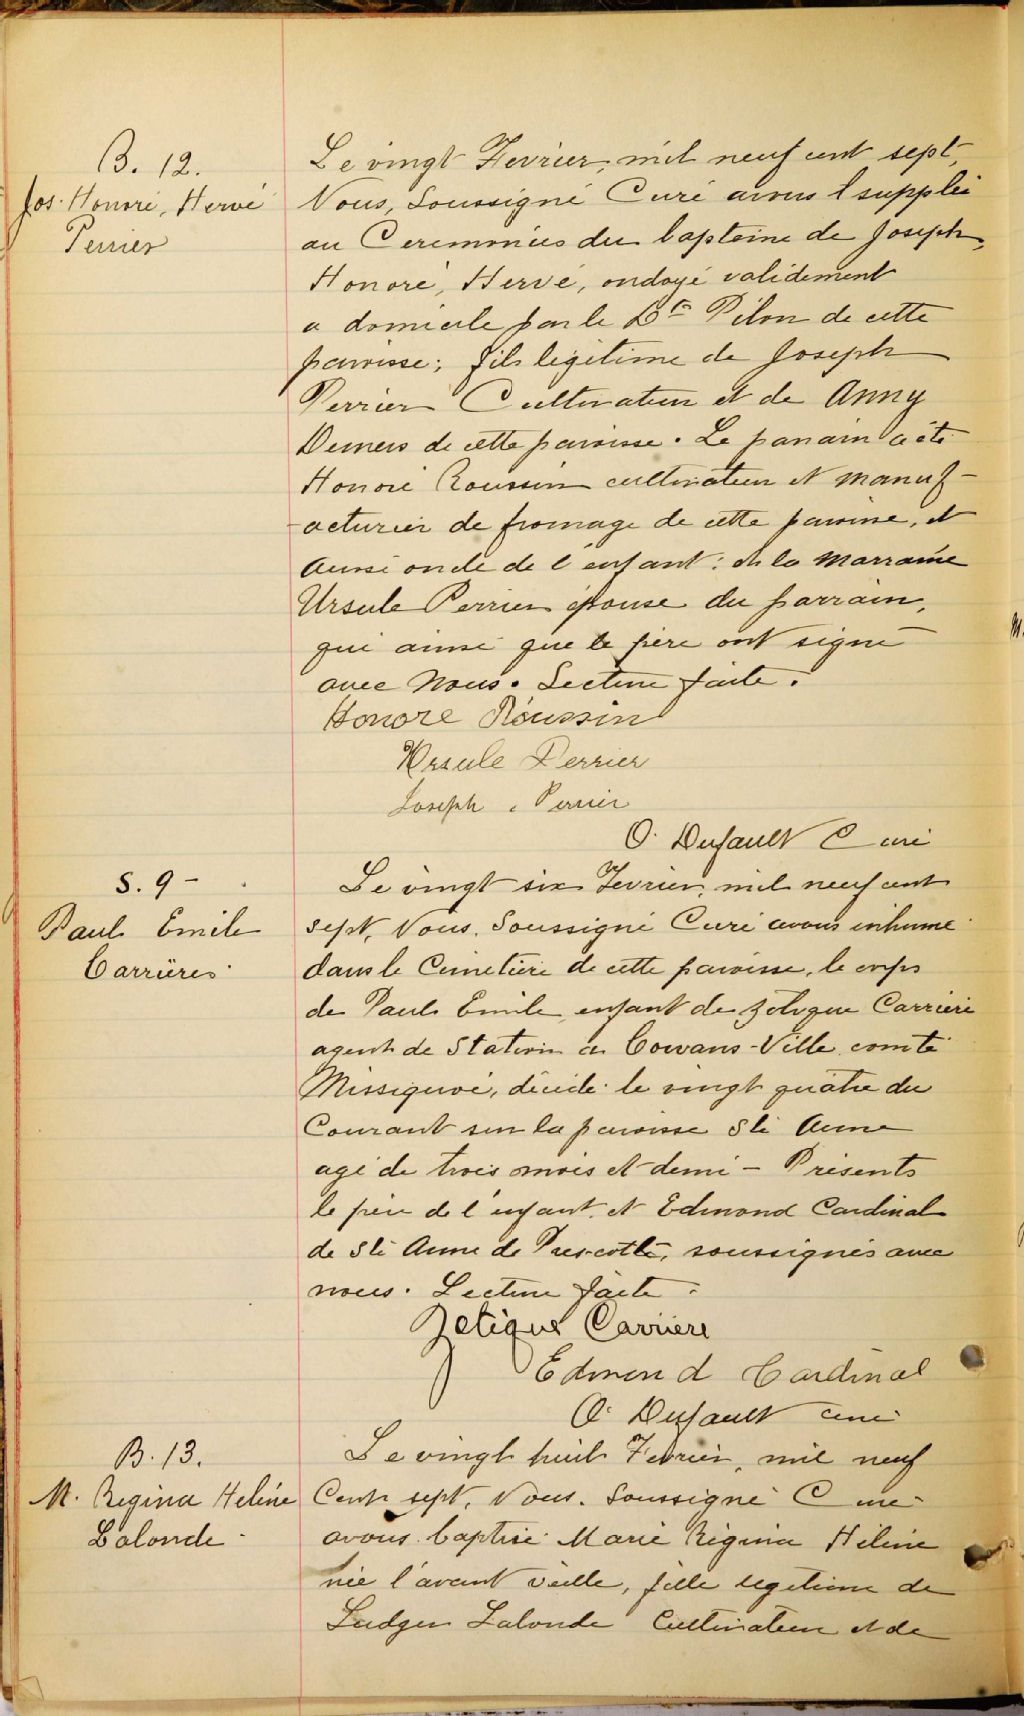 B. 12.
Jos. Honoré, Hervé
Perrier
Le vingt Fevrier, mil neuf cent sept,
Nous, Soussigné Curé avons suppléé
au Ceremonies du bapteme de Joseph,
Honoré, Hervé, ondoyé validement
a domicile par le Dr Pilon de cette
paroisse; fils légitime de Joseph
Perrier Cultivateur et de Anny
Demers de cette paroisse. Le parrain a été
Honoré Roussin cultivateur et manuf-
-acturier de fromage de cette paroisse, et
aussi oncle de l'enfant: et la marraine
Ursule Perrier épouse du parrain,
qui ainsi que le père ont signé
avec Nous. Lecture faite.
Honore Roussin
Ursule Perrier
Joseph Perrier
O. Dufault Curé
S. 9 -
Paul Emile
Carrières
Le vingt six Fevrier, mil neuf cent
sept, Nous, Soussigné Curé avons inhumé
dans le Cimetière de cette paroisse, le corps
de Paul Emile enfant de Zotique Carriere
agent de Station a Cowans-Ville comté
Missiquoi, décédé le vingt quatre du
Courant sur la paroisse Ste Anne
agé de trois mois et demi - Présents
le père de l'enfant et Edmond Cardinal
de Ste Anne de Prescott, soussignés avec
nous. Lecture faite.
Zotique Carriere
Edmond Cardinal
O. Dufault curé
B. 13.
M. Regina Heléne
Lalonde
Le vingt huit Fevrier, mil neuf
Cent sept, Nous, Soussigné Curé
avons baptisé Marie Régina Hélène
née l'avant veille, fille legitime de
Ludger Lalonde Cultivateur et de